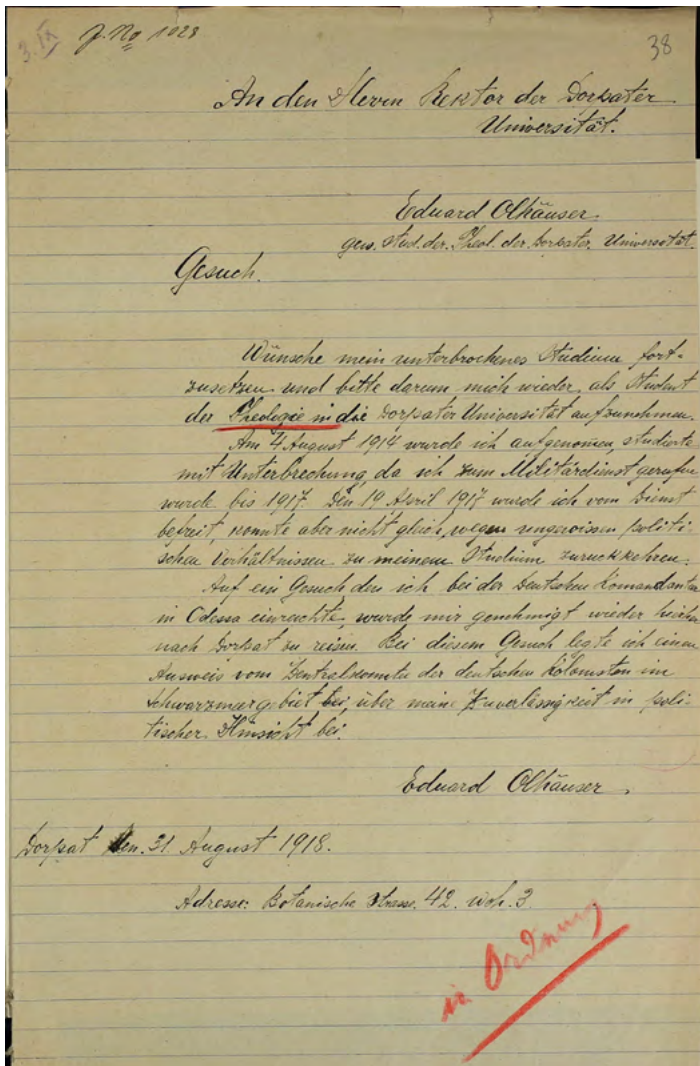 3. IX J. No 1028
38
An den Herrn Rektor der Dorpater
Universität.
Eduard Olhäuser.
gew. stud. der. Theol. der Dorpater Universität.
Gesuch.
Wünsche mein unterbrochenes Studium fort-
zusetzen und bitte darum mich wieder als Student
der Theologie in die Dorpater Universität aufzunehmen.
Am 4 August 1914 wurde ich aufgenomen, studierte
mit Unterbrechung, da ich zum Militärdienst gerufen
wurde bis 1917. Den 19 April 1917 wurde ich vom Dienst
befreit, konnte aber nicht gleich, wegen ungewissen politi-
schen Verhältnissen zu meinem Studium zurückkehren.
Auf ein Gesuch den ich bei der Deutschen Komandantur
in Odessa einreichte, wurde mir genehmigt wieder hierher
nach Dorpat zu reisen. Bei diesem Gesuch legte ich einen
Ausweis vom Zentralkomite der deutschen Kolonisten im
Schwarzmeergebiet bei, über meine Zuverlässigkeit in poli-
tischer Hinsicht bei.
Eduard Olhäuser.
Dorpat den. 31 August 1918.
Adresse: Botanische Strasse. 42. woh. 3.
in Ordnung